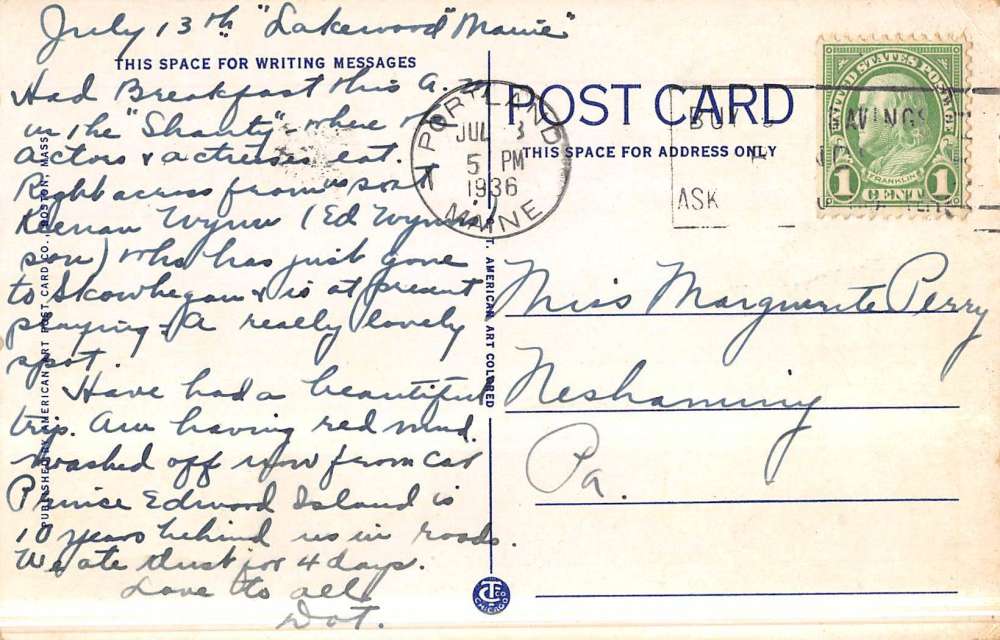 July 13th "Lakewood" Maine"
THIS SPACE FOR WRITING MESSAGES
Had Breakfast this A.M.
in the "Shanty" - where the
actors & actresses eat.
Right across from us sat
Keenan Wynn (Ed Wynn's
son) who has just gone
to Skowhegan & is at present
playing - A really lovely
spot.
Have had a beautiful
trip. Am having red mud
washed off now from car
Prince Edward Island is
10 years behind us in roads.
We ate dust for 4 days.
Love to all,
Dot.
PUBLISHED BY AMERICAN ART POST CARD CO., BOSTON, MASS.
C. T. AMERICAN ART COLORED
CT CO
CHICAGO
POST CARD
THIS SPACE FOR ADDRESS ONLY
PORTLAND
JUL 3
5 PM
1936
MAINE
BUY
SAVINGS
ASK
UNITED STATES POSTAGE
FRANKLIN
1 CENT 1
Miss Marguerite Perry
Neshaminy
Pa.